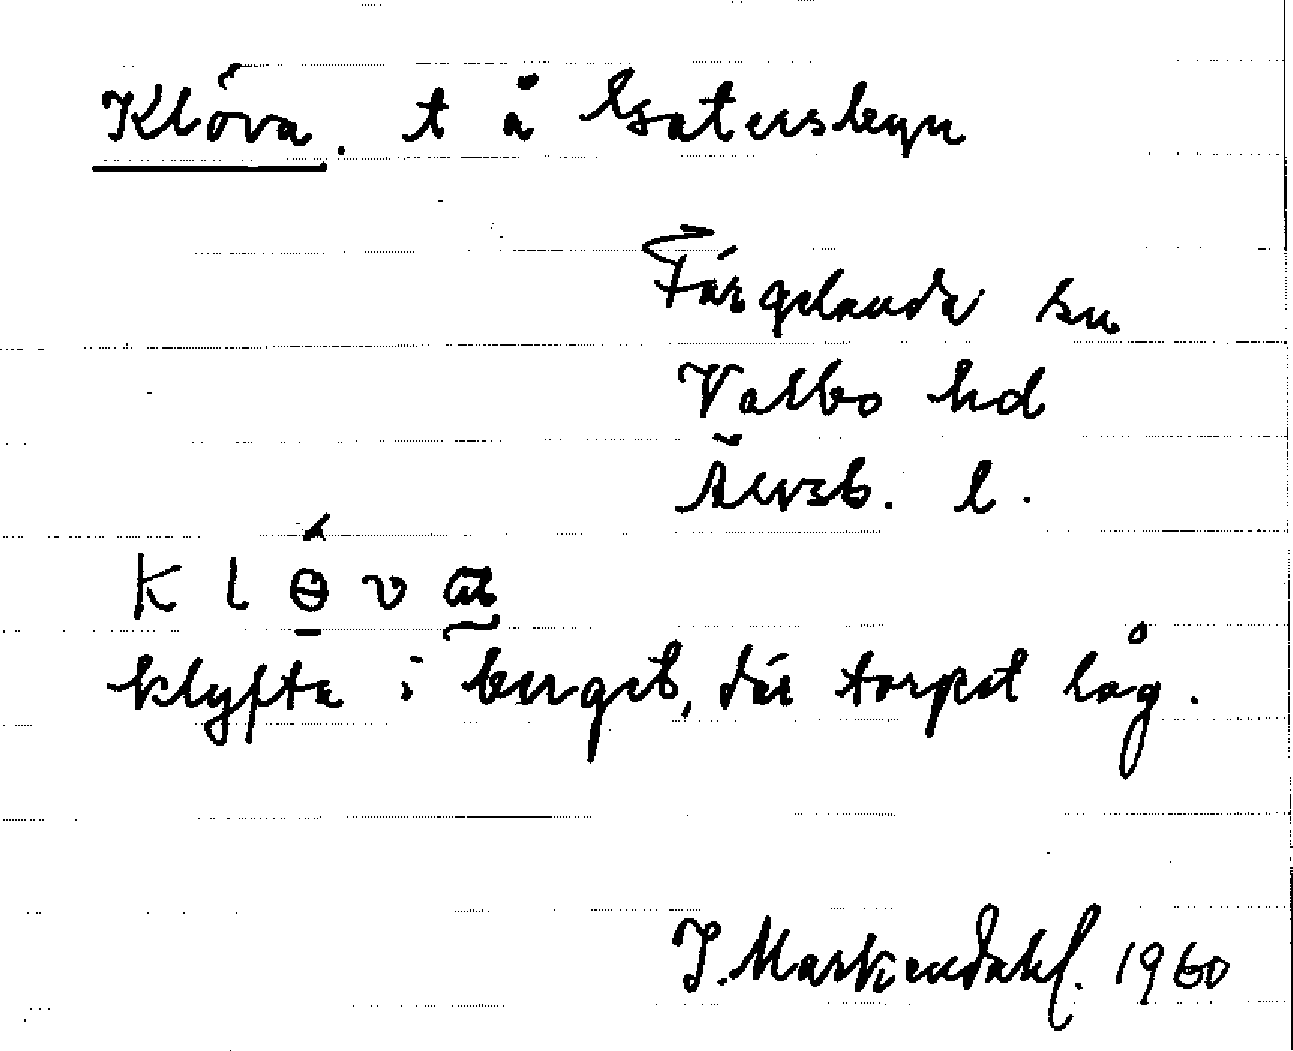 Klöva. t å Gatersbyn
Färgelanda sn
Valbo hd
Älvsb. l.
k l ɵ́ v a
klyfta i berget, där torpet låg.
J. Markendahl. 1960